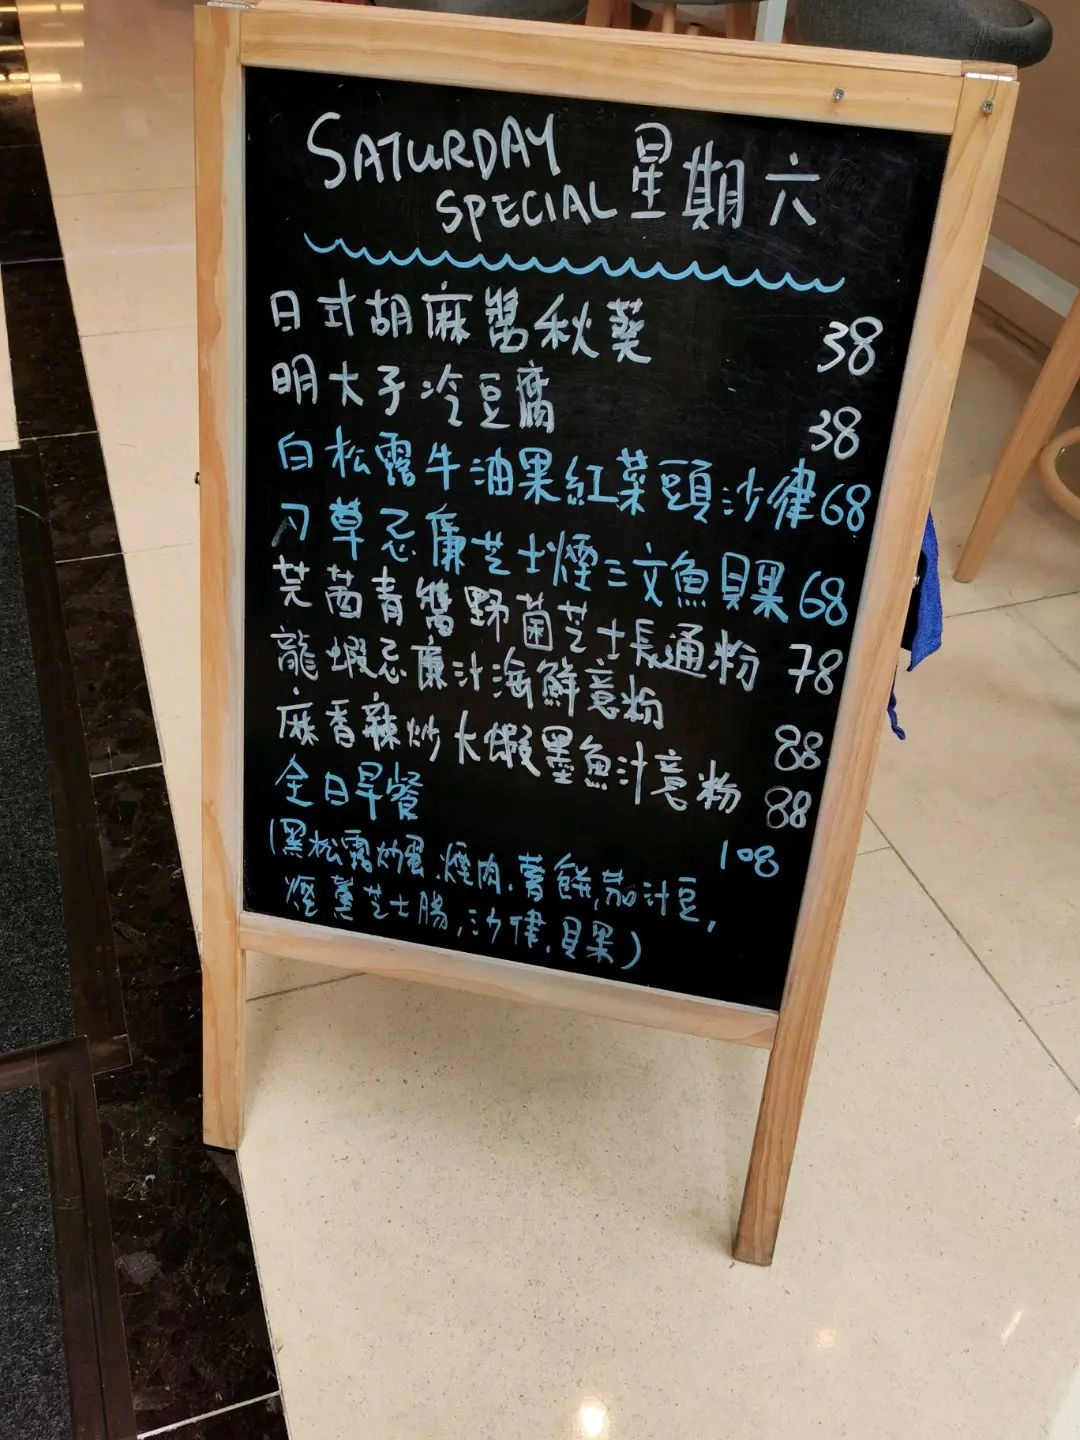 SATURDAY
SPECIAL 星期六
日式胡麻醬秋葵 38
明太子冷豆腐 38
白松露牛油果紅菜頭沙律 68
刁草忌廉芝士煙三文魚貝果 68
芫茜青醬野菌芝士長通粉 78
龍蝦忌廉汁海鮮意粉 88
麻香辣炒大蝦墨魚汁意粉 88
全日早餐 108
(黑松露炒蛋,煙肉,薯餅,茄汁豆,
煙薰芝士腸,沙律,貝果)